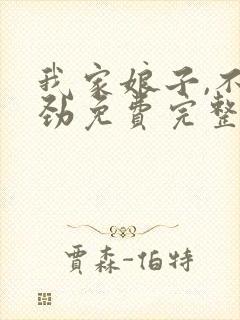 我家娘子,不
劲免费完整
贾森-伯特